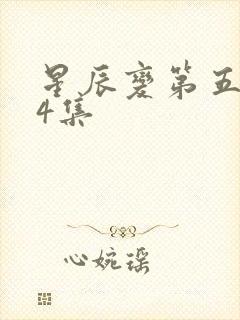 星辰变第五
4集
心婉瑶